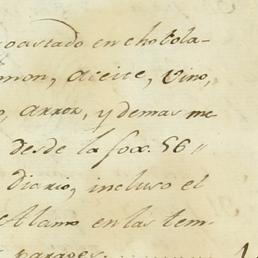 oastado en chocola-
mon, aceite, vino,
o, arroz, y demas me
desde la fox. 56"
diario, incluso el
Alamo en las tem-
parages.